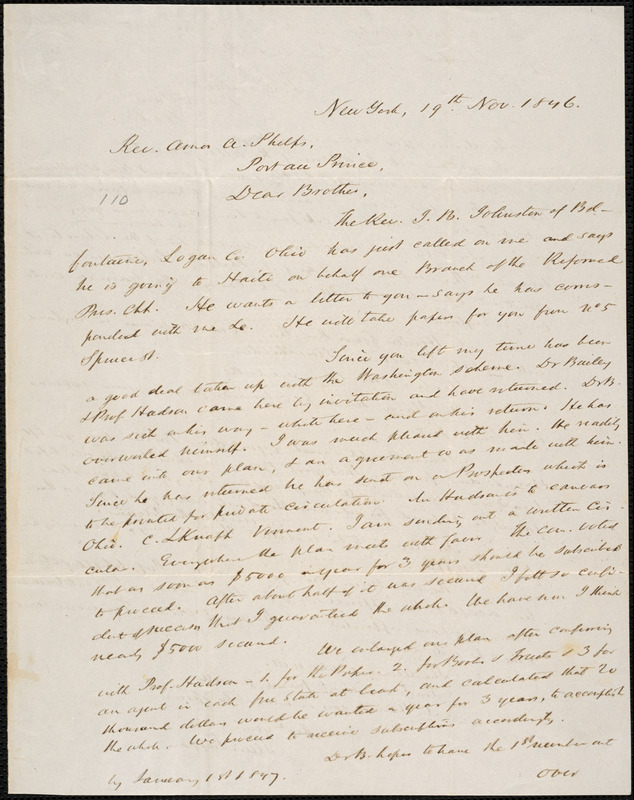 New York, 19th Nov. 1846.
Rev. Amos A. Phelps,
Port au Prince,
Dear Brother,
110
The Rev. J. B. Johnston of Bel-
fontaine, Logan Co. Ohio has just called on me and says
he is going to Haiti on behalf one Branch of the Reformed
Pres. Chh. He wants a letter to you – says he has corres-
ponded with me &c. He will take papers for you from No 5
Spruce St.
Since you left my time has been
a good deal taken up with the Washington scheme. Dr Bailey
& Prof Hudson came here by invitation and have returned. Dr B.
was sick on his way – while here – and on his return. He has
overworked himself. I was much pleased with him. He readily
came into our plan, & an agreement was made with him.
Since he has returned he has sent on a Prospectus which is
to be printed for private circulation. Mr Hudson is to canvass
Ohio. C. L. Knapp Vermont. I am sending out a written Cir-
cular. Everywhere the plan meets with favor. The com. voted
that as soon as $5000 a year for 3 years should be subscribed
to proceed. After about half of it was secured I felt so confi-
dent of success that I guaranteed the whole. We have now I think
nearly $5000 secured.
We enlarged our plan after conferring
with Prof. Hudson – 1. for the Paper. 2. for Books & Tracts & 3 for
an agent in each free State at least, and calculated that 20
thousand dollars would be wanted a year for 3 years, to accomplish
the whole. We proceed to receive subscriptions accordingly.
Dr B. hopes to have the 1st number out
by January 1st 1847.
over